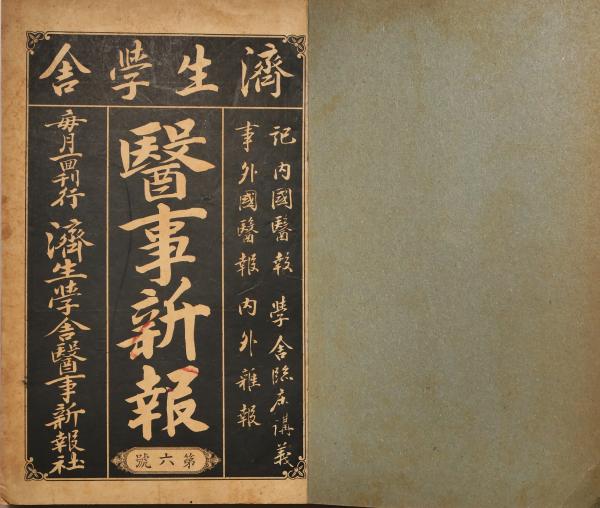 濟生學舍
記内國醫報 學舍臨床講義
事外國醫報 内外雜報
醫事新報
第六號
毎月一回刊行 濟生學舍醫事新報社